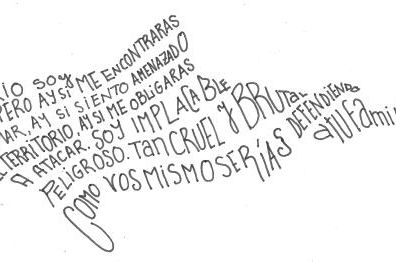 RIO SOY
PERO AY SI ME ENCONTRARAS
AR, AY SI SIENTO AMENAZADO
TERRITORIO, AY SI ME OBLIGARAS
A ATACAR. SOY IMPLACABLE
PELIGROSO. TAN CRUEL y BRUTAL
COMO VOS MISMO SERÍAS DEFENDIENDO
a tu fami